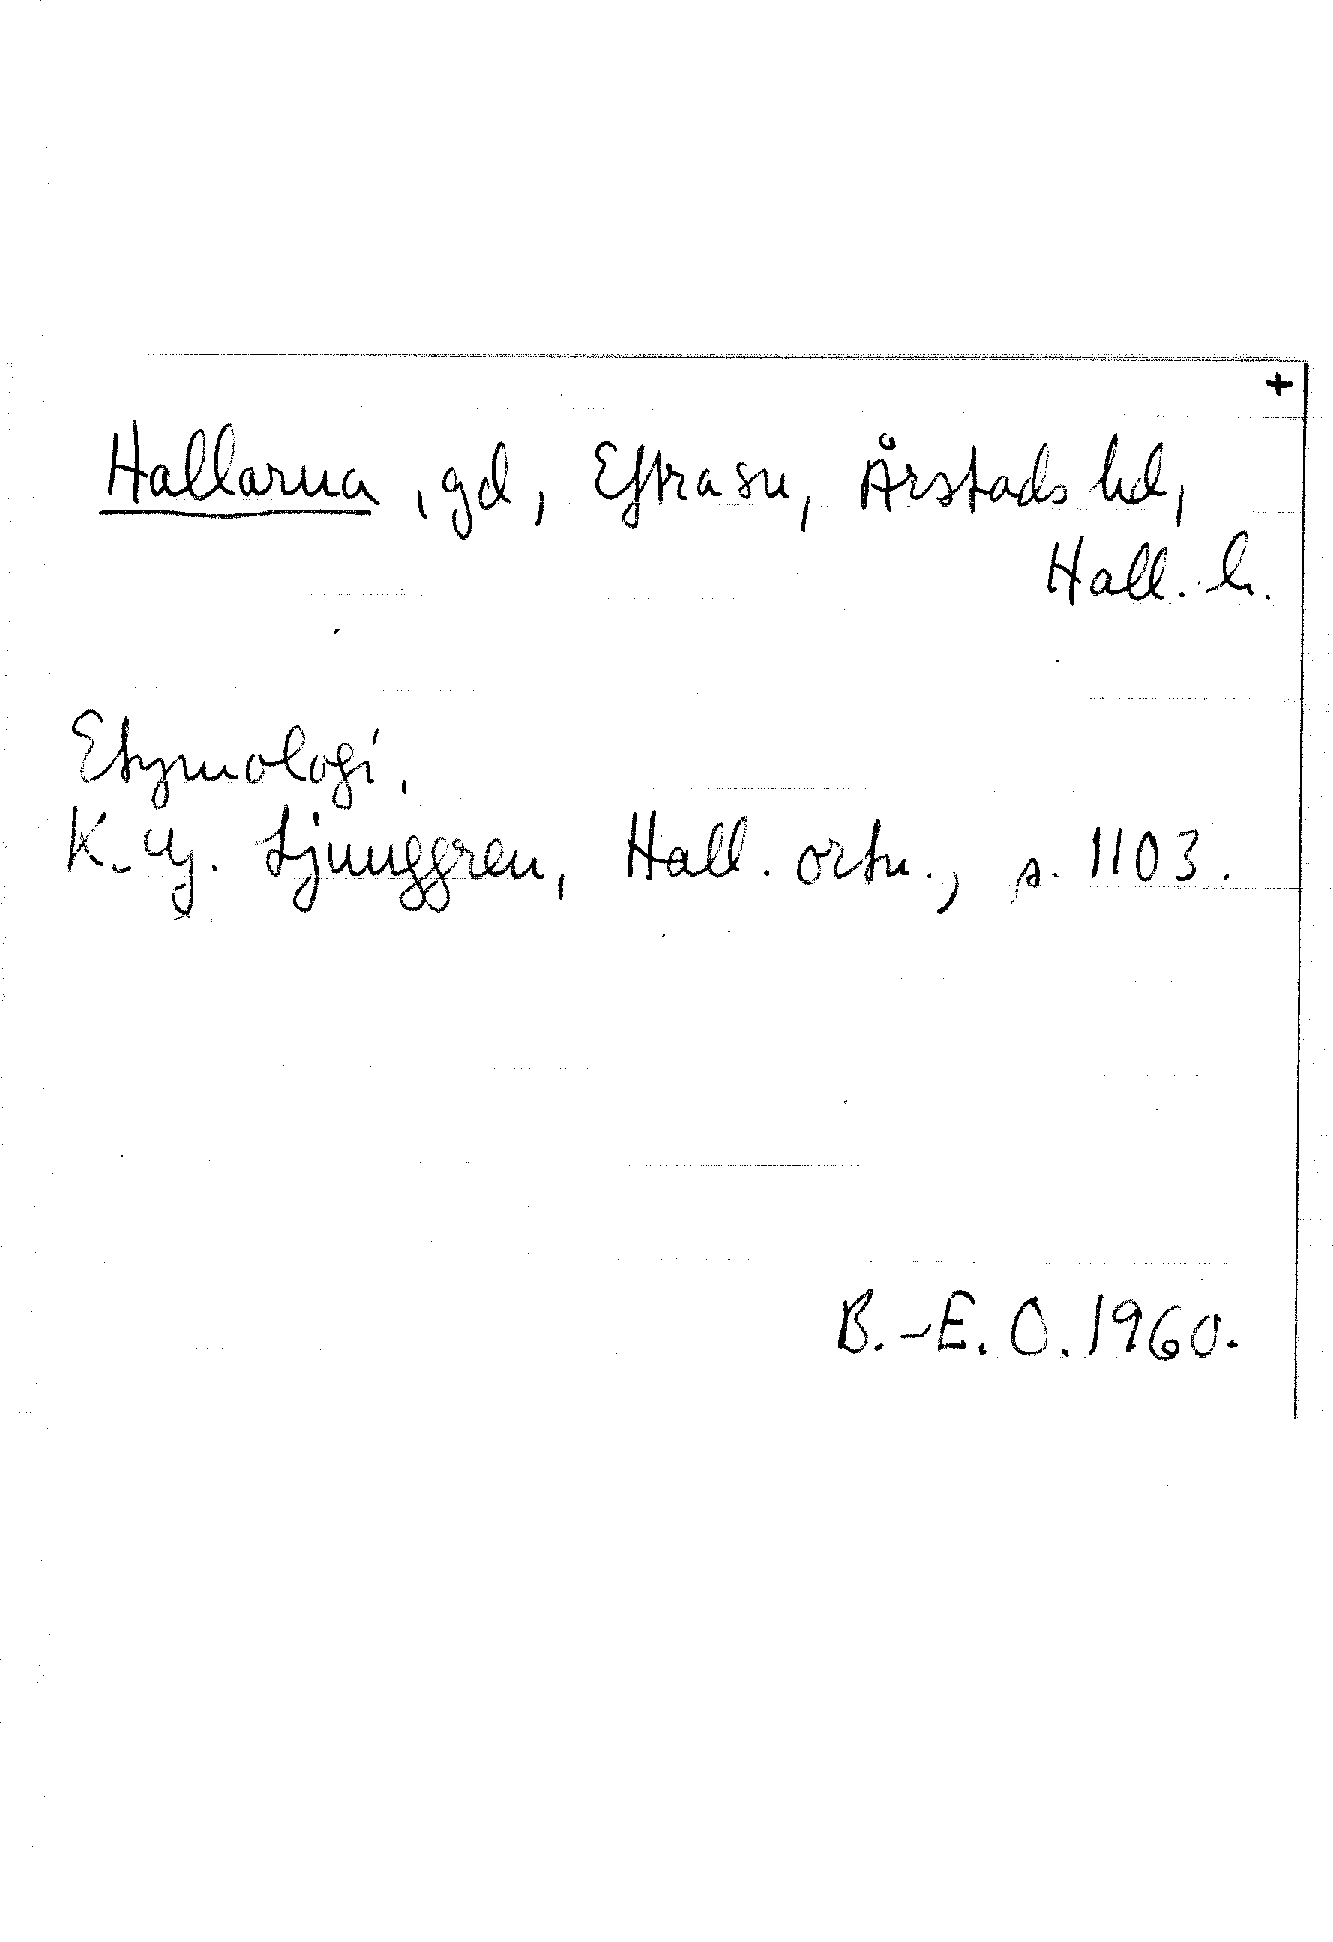 +
Hallarna, gd, Eftra sn, Årstads hd,
Hall. l.
Etymologi.
K.-G. Ljunggren, Hall. ortn., s. 1103.
B.-E. O. 1960.